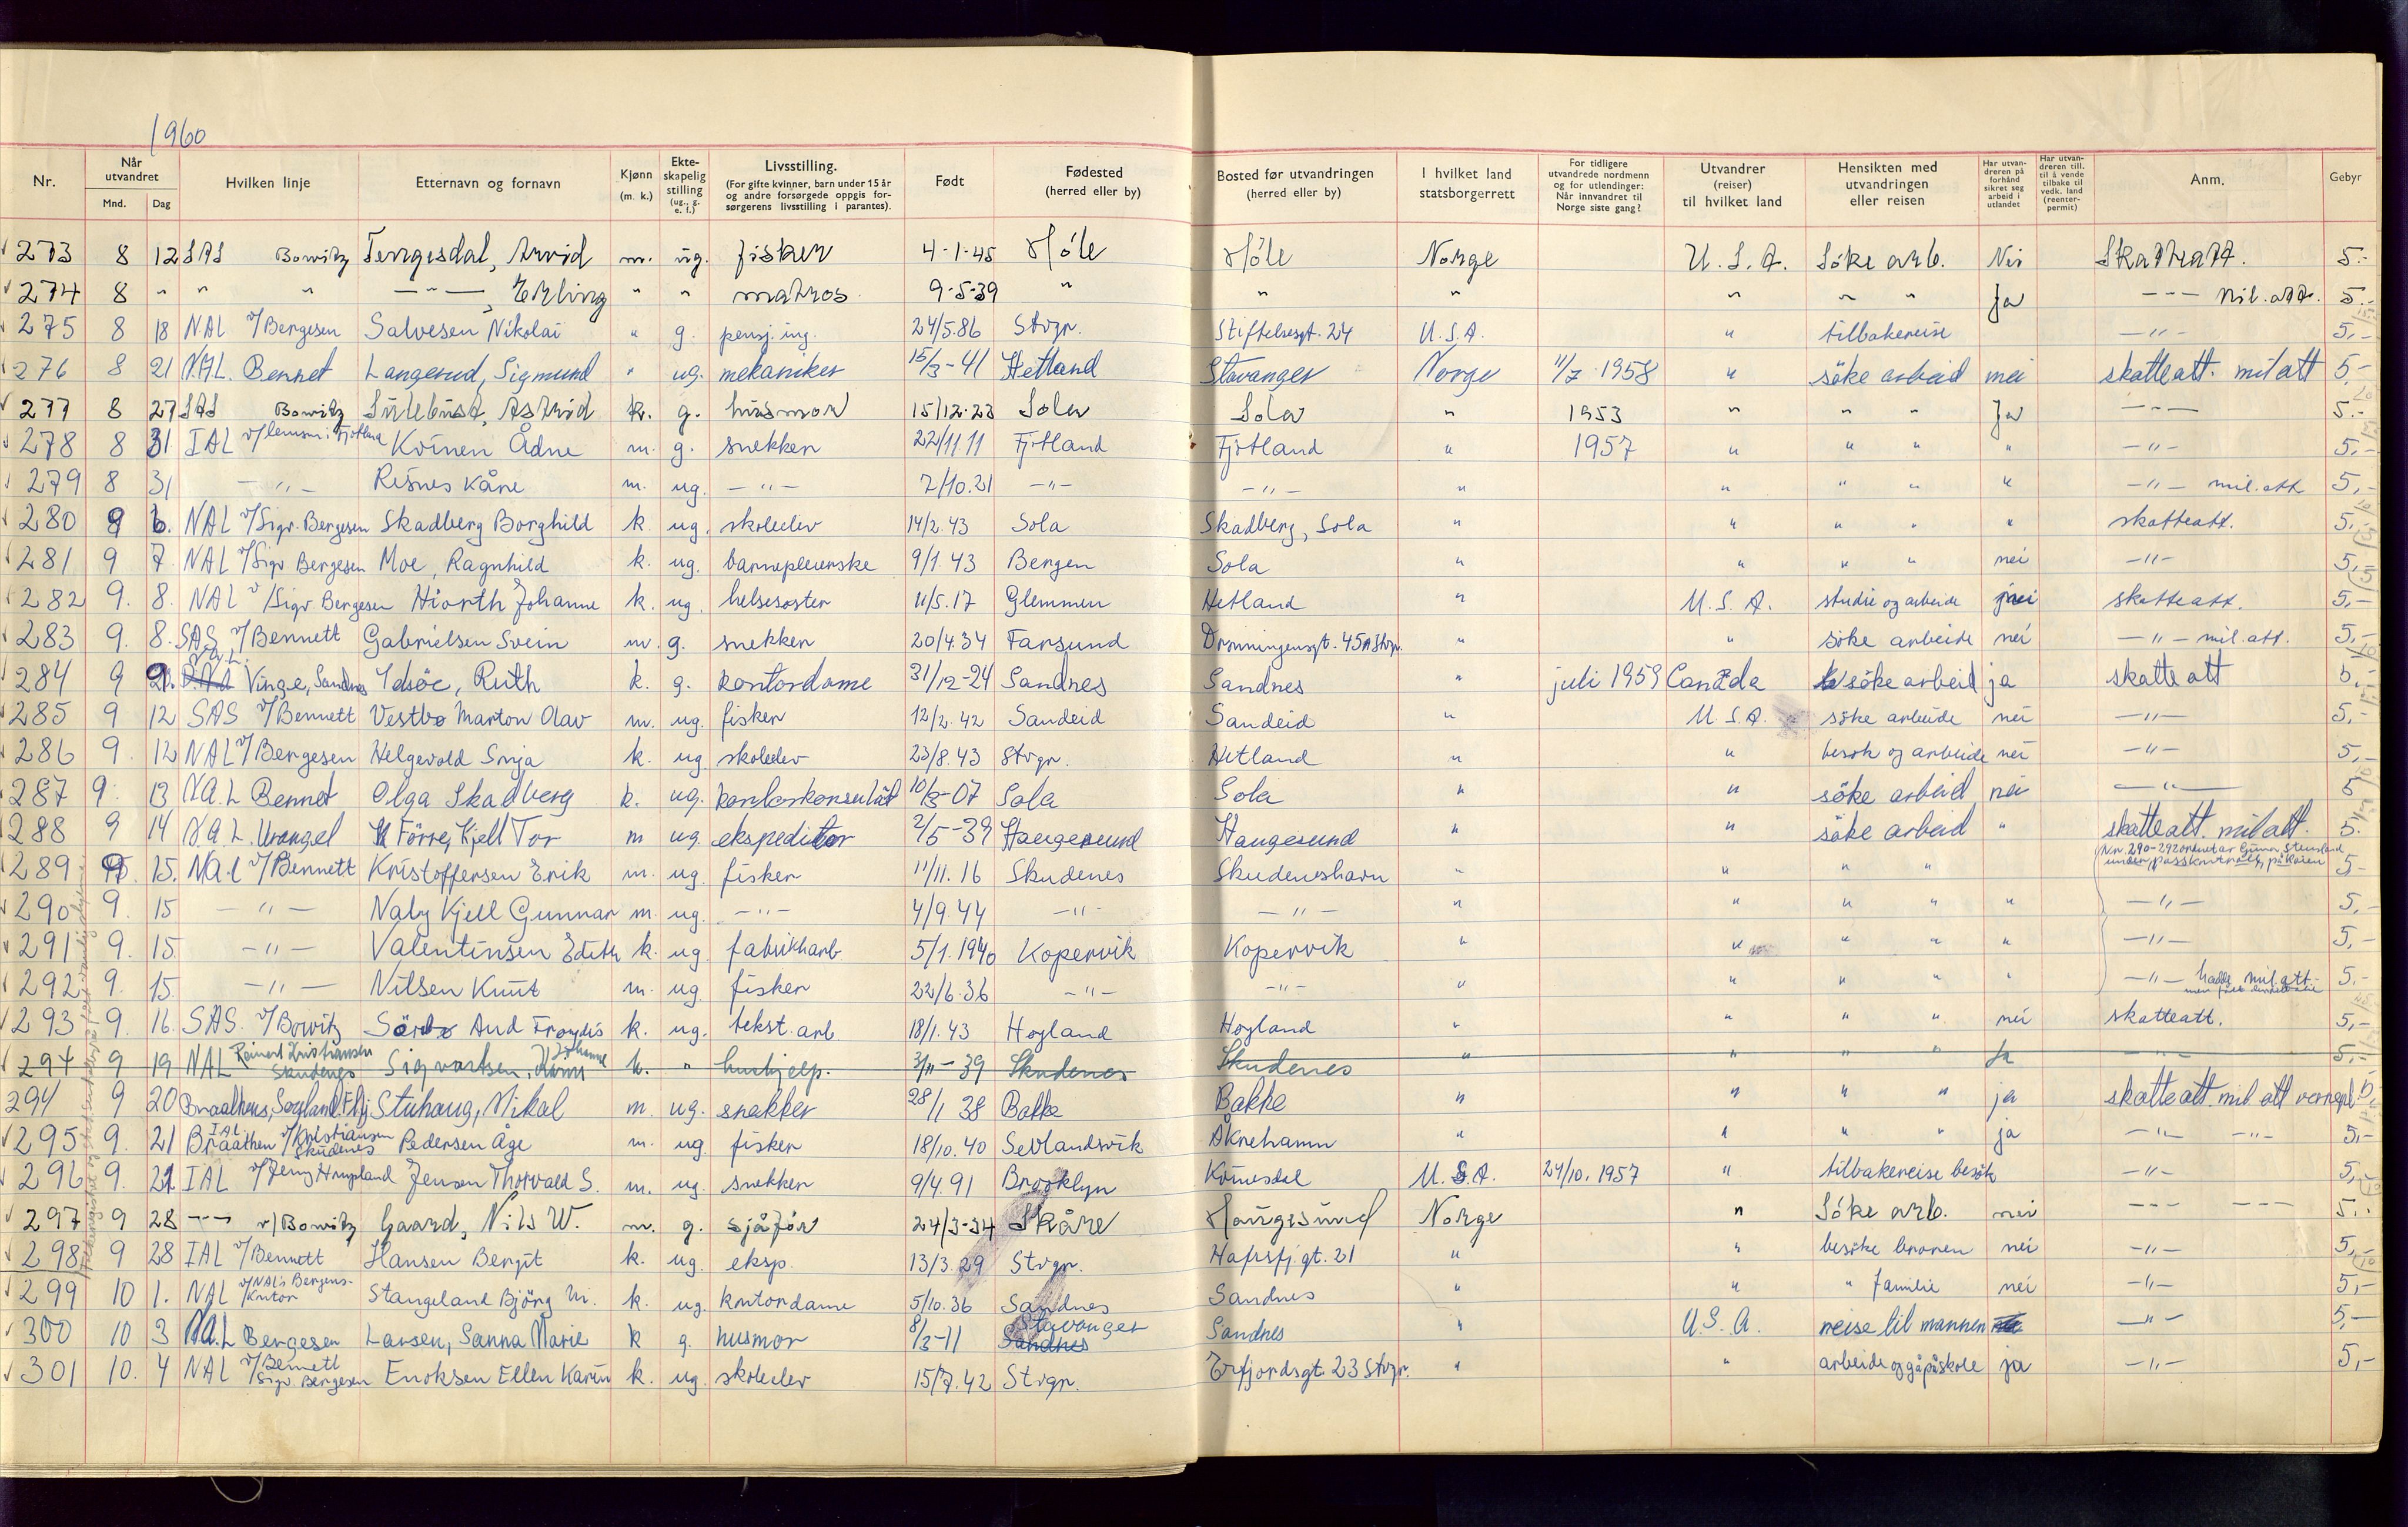 1960
Nr. Når utvandret Mnd. Dag Hvilken linje Etternavn og fornavn Kjønn (m. k.) Ekteskapelig stilling (ug., g. e. f.) Livsstilling. (For gifte kvinner, barn under 15 år og andre forsørgede oppgis forsørgerens livsstilling i parantes). Født Fødested (herred eller by) Bosted før utvandringen (herred eller by) I hvilket land statsborgerrett For tidligere utvandrede nordmenn og for utlendinger: Når innvandret til Norge siste gang? Utvandrer (reiser) til hvilket land Hensikten med utvandringen eller reisen Har utvandreren på forhånd sikret seg arbeid i utlandet Har utvandreren till. til å vende tilbake til vedk. land (reenterpermit) Anm. Gebyr
273 8 12 SAS Bowitz Tengesdal, Arvid m. ug. fisker 4-1-45 Høle Høle Norge U.S.A. Söke arb. Nei Skatteatt. 5.-
274 8 " " " —"—, Erling " " matros 9-5-39 " " " " " " Ja --- Mil.att. 5.-
275 8 18 NAL v/Bergesen Salvesen Nikolai " g. pensj. ing. 24/5.86 Stvgr. Stiftelsesgt. 24 U.S.A. " tilbakereise —"— 5,-
276 8 21 N.A.L. Bennet Langerud, Sigmund " ug. mekaniker 15/3-41 Hetland Stavanger Norge 11/7 1958 " söke arbeid nei skatteatt. mil att 5,-
277 8 27 SAS Bowitz Sülebust, Astrid k. g. husmor 15/12-23 Sola Sola " 1953 " " " Ja --- 5.-
278 8 31 IAL v/lensm. i Fjotland Kvinen Ådne m. g. snekker 22/11 11 Fjotland Fjotland " 1957 " " " " —"— 5,-
279 8 31 —"— Risnes Kåre m. ug. —"— 7/10.21 —"— —"— " " " " " —"— mil.att 5,-
280 9 6. NAL v/Sigv. Bergesen Skadberg Borghild k. ug. skoleelev 14/2.43 Sola Skadberg, Sola " " " " " skatteatt. 5,-
281 9 7. NAL v/Sigv Bergesen Moe, Ragnhild k. ug. barnepleierske 9/1.43 Bergen Sola " " " " nei —"— 5,-
282 9. 8. NAL v/Sigv Bergesen Hiorth Johanne k. ug. helsesøster 11/5.17 Glemmen Hetland " U.S.A. studie og arbeide nei skatteatt. 5,-
283 9. 8. SAS v/Bennett Gabrielsen Svein m. g. snekker 20/4.34 Farsund Dronningensgt. 45A Stvgr. " " söke arbeide nei —"— mil.att. 5,-
284 9 9. Vinge, Sandnes Idsöe, Ruth k. g. kontordame 31/12-24 Sandnes Sandnes " juli 1959 Canada söke arbeid ja skatte att 5,-
285 9 12 SAS v/Bennett Vestbø Marton Olav m. ug. fisker 12/2.42 Sandeid Sandeid " U.S.A. söke arbeide nei —"— 5,-
286 9. 12 NAL v/Bergesen Helgevold Sonja k. ug skoleelev 23/8.43 Stvgr. Hetland " " besøk og arbeide nei —"— 5,-
287 9. 13 N.A.L Bennet Olga Skadberg k. ug. 10/3-07 Sola Sola " " söke arbeid nei —"— 5
288 9 14 N.A.L. Wrangel Förre, Kjell Tor m ug. ekspeditor 2/5-39 Haugesund Haugesund " " söke arbeid " skatteatt. mil att. 5.
289 9. 15. NAL v/Bennett Kristoffersen Erik m. ug. fisker 11/11.16 Skudenes Skudeneshavn " " " " Nr. 290-292 ordnet av Gunn. Stensland under passkontroll på kaien 5-
290 9. 15 —"— Naley Kjell Gunnar m. ug. —"— 4/9.44 —"— —"— " " " " " —"— 5,-
291 9. 15. —"— Valentinsen Edith k. ug. fabrikkarb 5/1.1940 Kopervik Kopervik " " " " " —"— 5,-
292 9. 15. —"— Nilsen Knut m. ug fisker 22/6.36 —"— —"— " " " " " —"— hadde mil.att. 5,-
293 9. 16. SAS. v/Bowitz Sørbø Aud Frøydis k. ug. tekst. arb 18/1.43 Høyland Høyland " " " " nei skatteatt. 5,-
294 9 19 NAL Reinert Kristiansen Skudenes Sigvartsen, Johanne k. " hushjelp. 3/11-39 Skudenes Skudenes " " " " Ja --- 5.-
294 9 20 Braathens, Sogland. Flkj Stuhaug, Mikal m. ug. snekker 28/1 38 Bakke Bakke " " " " ja skatteatt. mil att vernepl 5,-
295 9. 21 IAL Braathen v/Kristiansen Skudenes Pedersen Åge m. ug fisker 18/10.40 Sevlandsvik Åkrehamn " " " " ja —"— —"— 5,-
296 9. 21 IAL v/Jenny Hompland Jensen Thorvald S. m. ug. snekker 9/4.91 Brooklyn Kvinesdal U.S.A. 24/10.1957 " tilbakereise besøk —"— 5,-
297 9 28 --- v/Bowitz Gaard, Nils W. m. g. sjåför 24/3-34 Skåre Haugesund Norge " Söke arb. nei --- --- 5.-
298 9 28 IAL v/Bennett Hansen Bergit k. ug. eksp. 13/3.29 Stvgr. Hafrsfj.gt. 21 " " besöke broren nei —"— 5,-
299 10 1. NAL v/NAL's Bergens-kontor Stangeland Björg M. k. ug. kontordame 5/10.36 Sandnes Sandnes " " " familie nei —"— 5,-
300 10 3 N.A.L Bergesen Larsen, Sanna Marie k g. husmor 8/3-11 Stavanger Sandnes Sandnes " U.S.A. reise til mannen —"— 5,-
301 10. 4 NAL v/Bennett Sigv. Bergesen Enoksen Ellen Karin k. ug. skoleelev 15/7.42 Stvgr. Erfjordsgt. 23 Stvgr. " " arbeide og gå på skole ja —"— 5,-